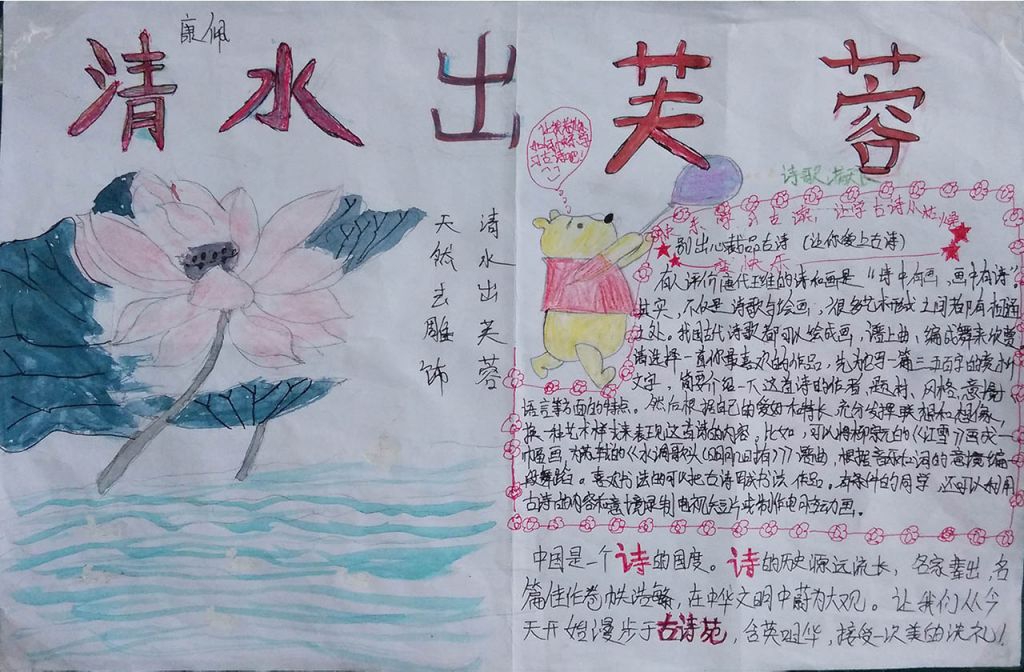 康佩
清水出芙蓉
清水出芙蓉
天然去雕饰
诗歌
别出心裁品古诗（让你爱上古诗）
有人评价唐代王维的诗和画是“诗中有画，画中有诗”
其实，不仅是诗歌与绘画，很多艺术形式之间都有相通
之处。我国古代诗歌都可以绘成画，谱上曲，编成舞来欣赏
请选择一首你最喜欢的作品，先为它写一篇三五百字的赏析
文字，简要介绍一下这首诗的作者、题材、风格、意境
语言等方面的特点。然后根据自己的爱好和特长，充分发挥联想和想像，
换一种艺术样式来表现这首诗的内容。比如，可以将柳宗元的《江雪》画成一
幅画，为苏轼的《水调歌头（明月几时有）》谱曲，根据音乐和词的意境编
段舞蹈。喜好书法的可以把古诗写成书法作品。有条件的同学，还可以利用
古诗的内容和意境录制电视短片或制作电脑动画。
中国是一个诗的国度。诗的历史源远流长，名家辈出，名
篇佳作卷帙浩繁，在中华文明中蔚为大观。让我们从今
天开始漫步于古诗苑，含英咀华，接受一次美的洗礼！